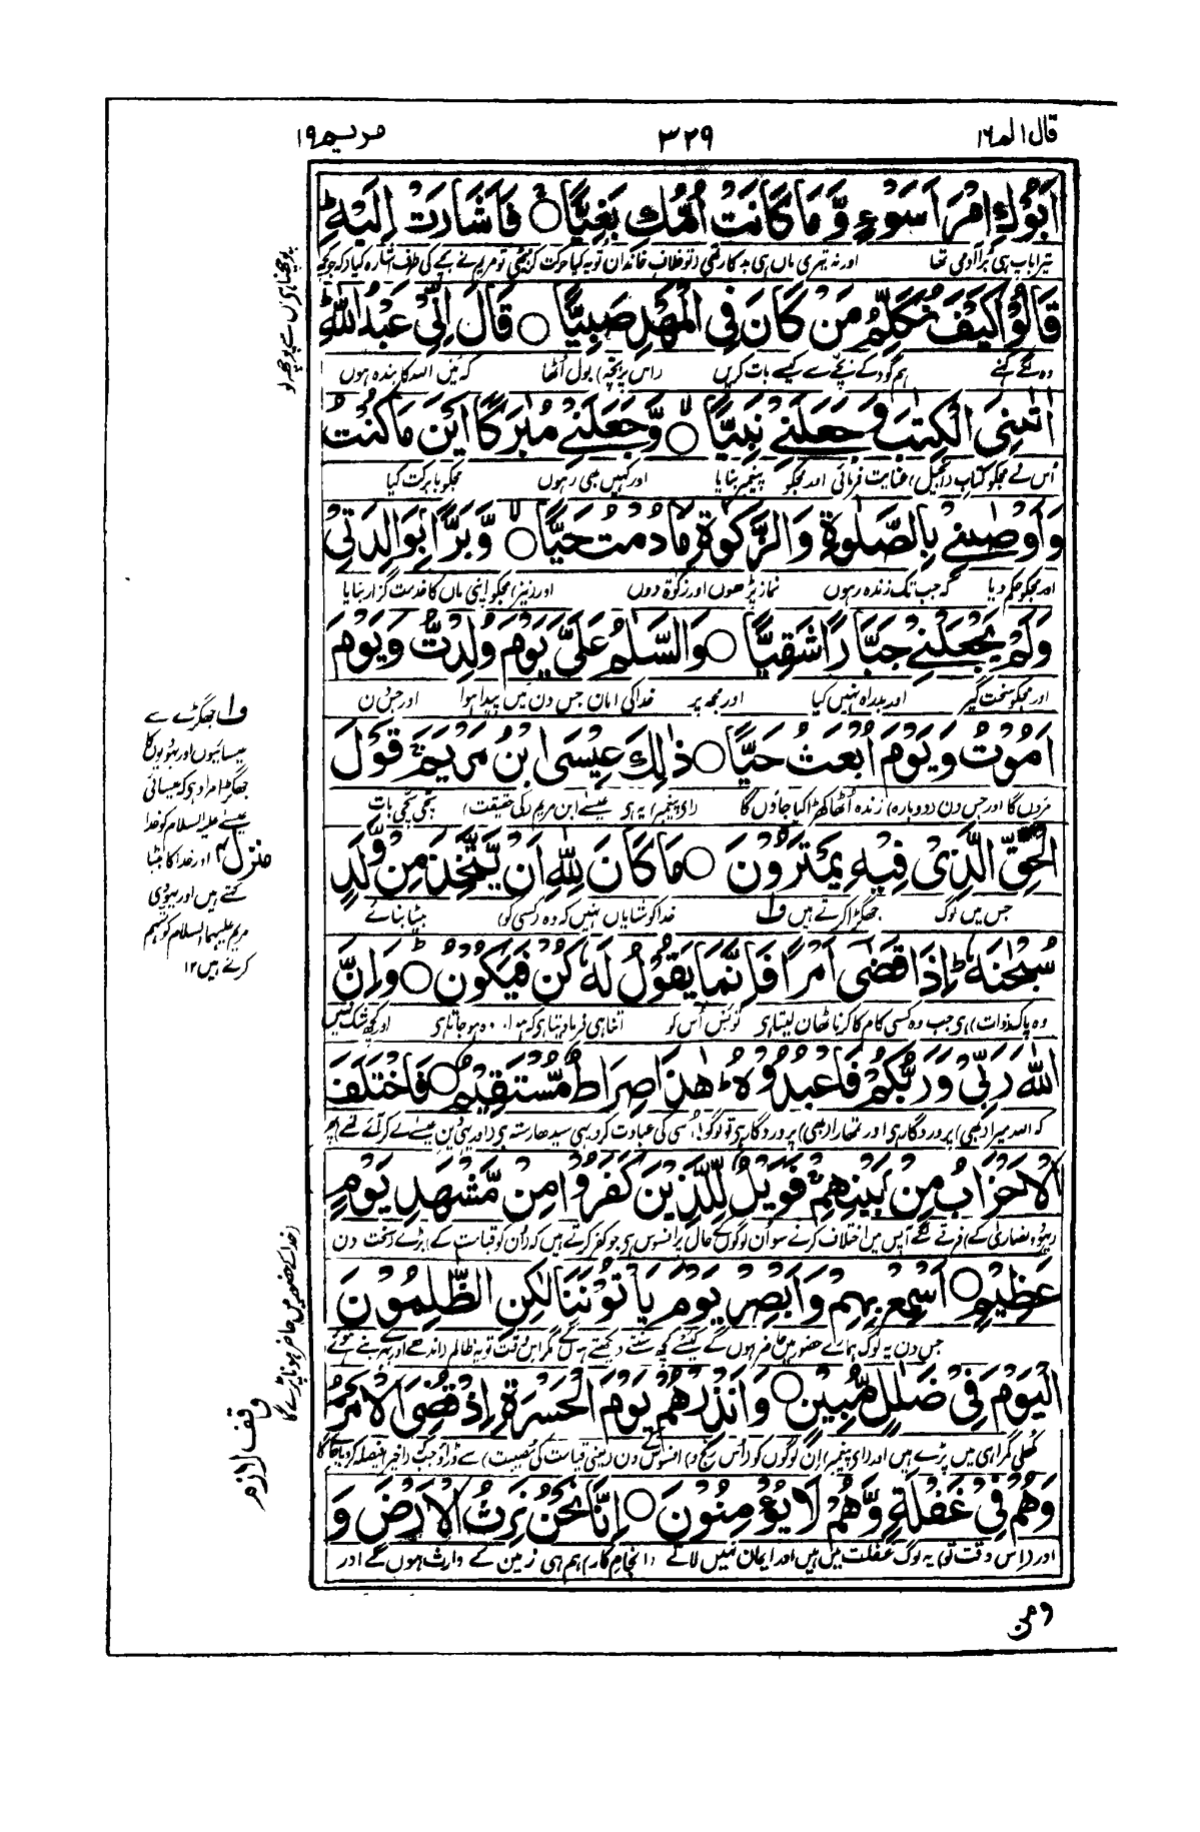 قال الم ۱۶
۳۲۹
مریم ۱۹
اَبُوْكِ امْرَاَ سَوْءٍ وَّمَا كَانَتْ اُمُّكِ بَغِیًّا ○ فَاَشَارَتْ اِلَیْهِ ؕ
تیرا باپ ہی بُرا آدمی تھا اور نہ تیری ماں ہی بدکار تھی (تو خلاف خاندان تو یہ کیا حرکت کر بیٹھی) تو مریم نے بچے کی طرف اشارہ کیا کہ جو کچھ
پوچھنا ہو اس سے پوچھ لو
قَالُوْا كَیْفَ نُكَلِّمُ مَنْ كَانَ فِی الْمَهْدِ صَبِیًّا ○ قَالَ اِنِّیْ عَبْدُ اللّٰهِ
وہ لگے کہنے ہم گود کے بچے سے کیسے بات کریں (اس پر بچہ) بول اُٹھا کہ میں اللہ کا بندہ ہوں
اٰتٰىنِیَ الْكِتٰبَ وَ جَعَلَنِیْ نَبِیًّا ○ وَّجَعَلَنِیْ مُبٰرَكًا اَیْنَ مَا كُنْتُ
اُس نے مجکو کتاب (انجیل) عنایت فرمائی اور مجکو پیغمبر بنایا اور کہیں بھی رہوں مجکو بابرکت کیا
وَاَوْصٰنِیْ بِالصَّلٰوةِ وَالزَّكٰوةِ مَا دُمْتُ حَیًّا ○ وَّبَرًّۢا بِوَالِدَتِیْ
اور مجکو حکم دیا کہ جب تک زندہ رہوں نماز پڑھوں اور زکوٰۃ دوں اور (نیز) مجکو اپنی ماں کا خدمت گزار بنایا
وَلَمْ یَجْعَلْنِیْ جَبَّارًا شَقِیًّا ○ وَالسَّلٰمُ عَلَیَّ یَوْمَ وُلِدْتُّ وَیَوْمَ
اور مجکو سخت گیر اور بدراہ نہیں کیا اور مجھ پر خدا کی امان جس دن میں پیدا ہوا اور جس دن
اَمُوْتُ وَیَوْمَ اُبْعَثُ حَیًّا ○ ذٰلِكَ عِیْسَی ابْنُ مَرْیَمَ ۚ قَوْلَ
مروں گا اور جس دن (دوبارہ) زندہ اُٹھا کھڑا کیا جاؤں گا (اے پیغمبر) یہ ہی عیسےٰ ابن مریم (کی حقیقت) سچی سچی بات
الْحَقِّ الَّذِیْ فِیْهِ یَمْتَرُوْنَ ○ مَا كَانَ لِلّٰهِ اَنْ یَّتَّخِذَ مِنْ وَّلَدٍ
جس میں لوگ جھگڑا کرتے ہیں ف۱ خدا کو شایاں نہیں کہ وہ (کسی کو) بیٹا بنائے
سُبْحٰنَهٗ ؕ اِذَا قَضٰۤی اَمْرًا فَاِنَّمَا یَقُوْلُ لَهٗ كُنْ فَیَكُوْنُ ؕ ○ وَاِنَّ
وہ پاک (ذات) ہی جب وہ کسی کام کا کرنا ٹھان لیتا ہی تو بس اُس کو اتنا ہی فرما دیتا ہی کہ ہو اور وہ ہو جاتا ہی اور کچھ شک نہیں
اللّٰهَ رَبِّیْ وَرَبُّكُمْ فَاعْبُدُوْهُ ؕ هٰذَا صِرَاطٌ مُّسْتَقِیْمٌ ○ فَاخْتَلَفَ
کہ اللہ میرا (بھی) پروردگار ہی اور تمہارا (بھی) پروردگار ہی تو لوگو! اُسی کی عبادت کرو یہی سیدھا رستہ ہی
الْاَحْزَابُ مِنْۢ بَیْنِهِمْ ۚ فَوَیْلٌ لِّلَّذِیْنَ كَفَرُوْا مِنْ مَّشْهَدِ یَوْمٍ
فرقے لگے آپس میں اختلاف کرنے سو اُن لوگوں کے حال پر افسوس ہی جو کفر کرتے ہیں کہ (ان کو قیامت کے) بڑے سخت دن
(خدا کے حضور میں حاضر ہونا پڑے گا
عَظِیْمٍ ○ اَسْمِعْ بِهِمْ وَاَبْصِرْ یَوْمَ یَاْتُوْنَنَا لٰكِنِ الظّٰلِمُوْنَ
جس دن یہ لوگ ہمارے حضور میں حاضر ہوں گے کیسے کچھ سنتے دیکھتے ہوں گے مگر اس وقت تو یہ ظالم (اندھے اور بہرے بنے ہوئے
الْیَوْمَ فِیْ ضَلٰلٍ مُّبِیْنٍ ○ وَاَنْذِرْهُمْ یَوْمَ الْحَسْرَةِ اِذْ قُضِیَ الْاَمْرُ ۘ
کھلی گمراہی میں پڑے ہیں اور (اے پیغمبر) اِن لوگوں کو (اُس رنج و) افسوس کے دن (یعنی قیامت کی مصیبت) سے ڈراؤ جب (اخیر) فیصلہ کر دیا جائے گا
وقف لازم
وَهُمْ فِیْ غَفْلَةٍ وَّهُمْ لَا یُؤْمِنُوْنَ ○ اِنَّا نَحْنُ نَرِثُ الْاَرْضَ وَ
اور (اس وقت تو) یہ لوگ غفلت میں ہیں اور ایمان نہیں لاتے (انجام کار) ہم ہی زمین کے وارث ہوں گے اور
ف۱ جھگڑے سے
عیسائیوں اور یہودیوں کا
جھگڑا مراد ہی کہ عیسائی
عیسےٰ علیہ السلام کو خدا
اور خدا کا بیٹا
کہتے ہیں اور یہودی
مریم علیہا السلام کو متہم
کرتے ہیں ۱۲
منزل ۴
و من